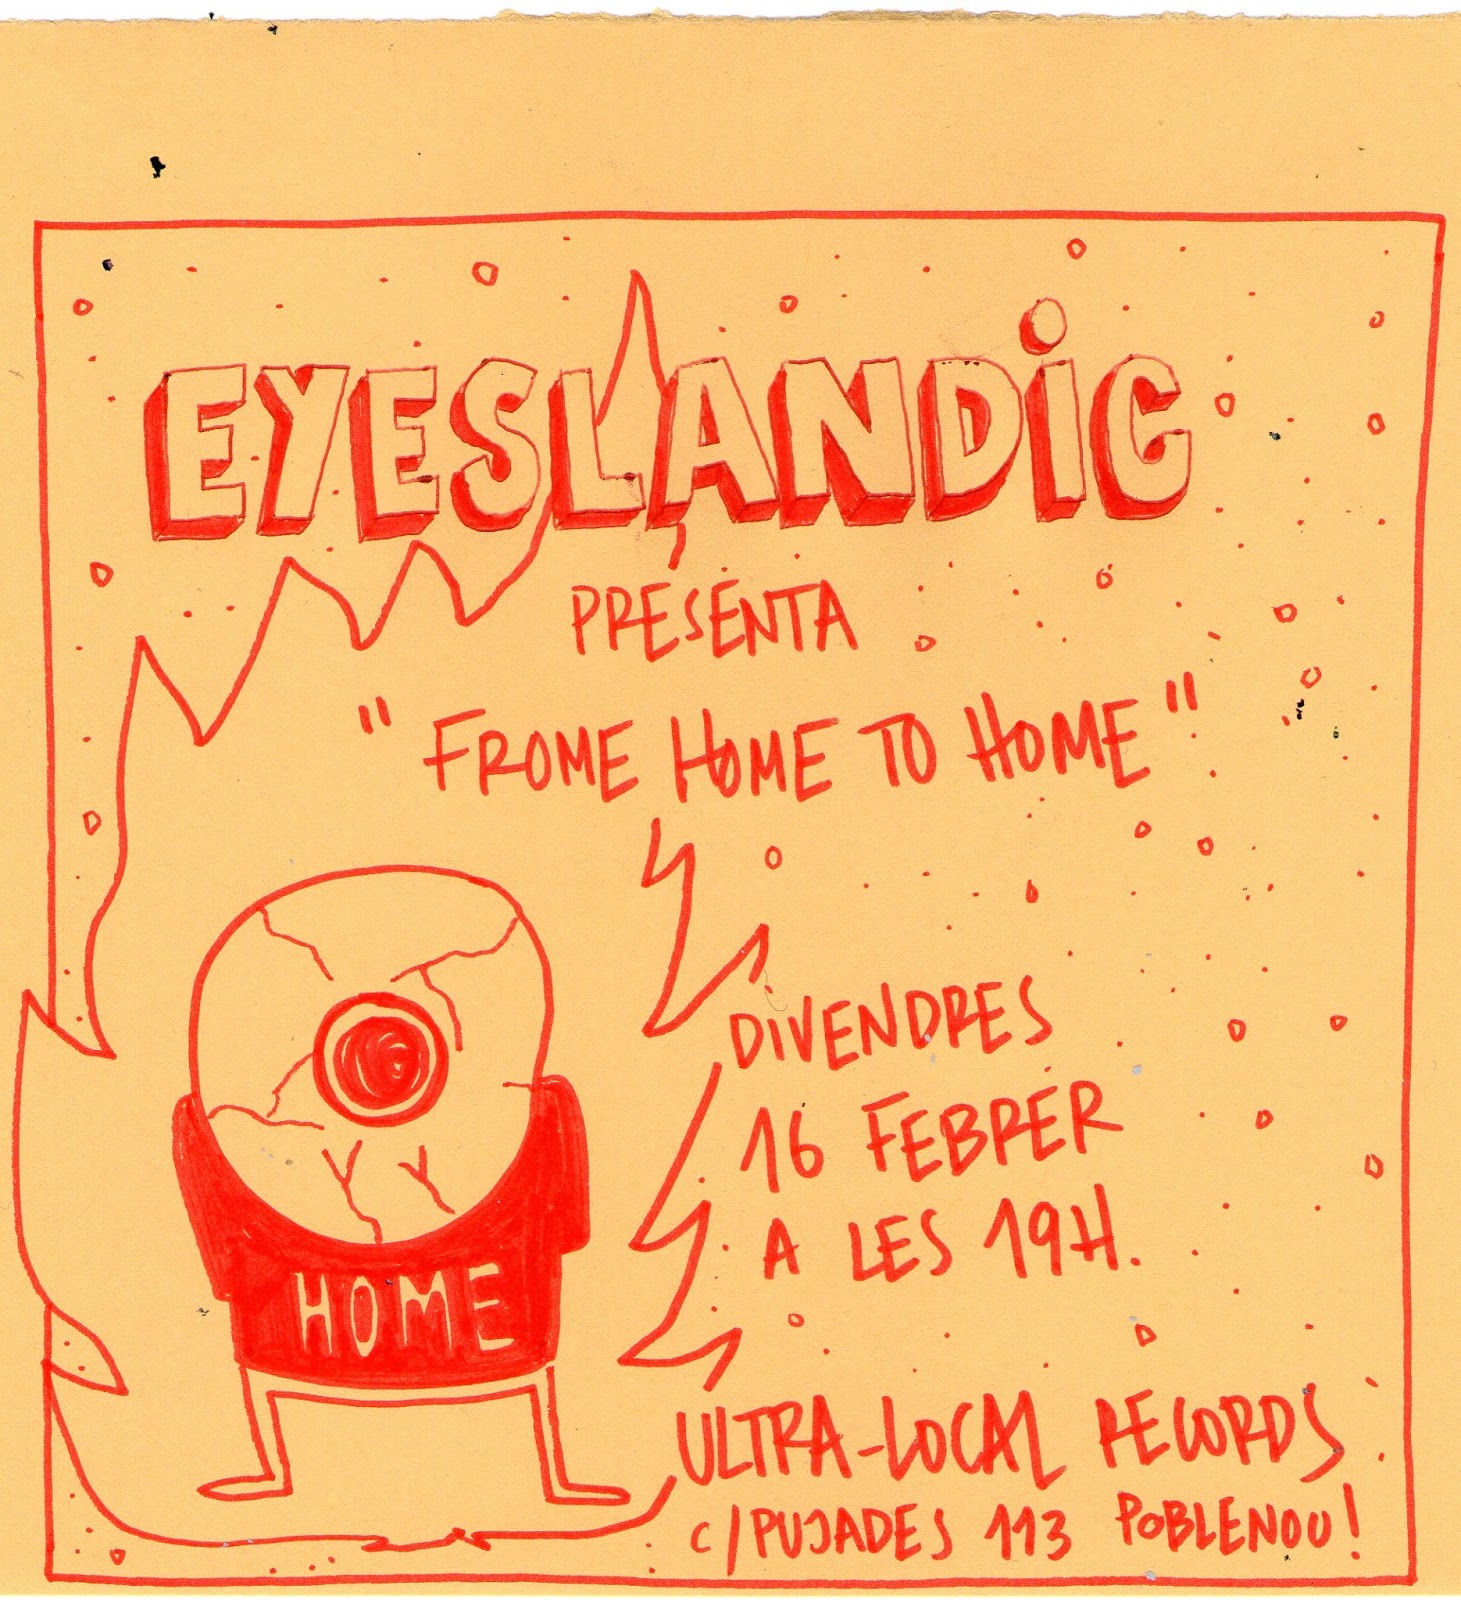 EYESLANDiC
PRESENTA
"FROME HOME TO HOME"
HOME
DIVENDRES
16 FEBRER
A LES 19H.
ULTRA-LOCAL RECORDS
C/PUJADES 113 POBLENOU!